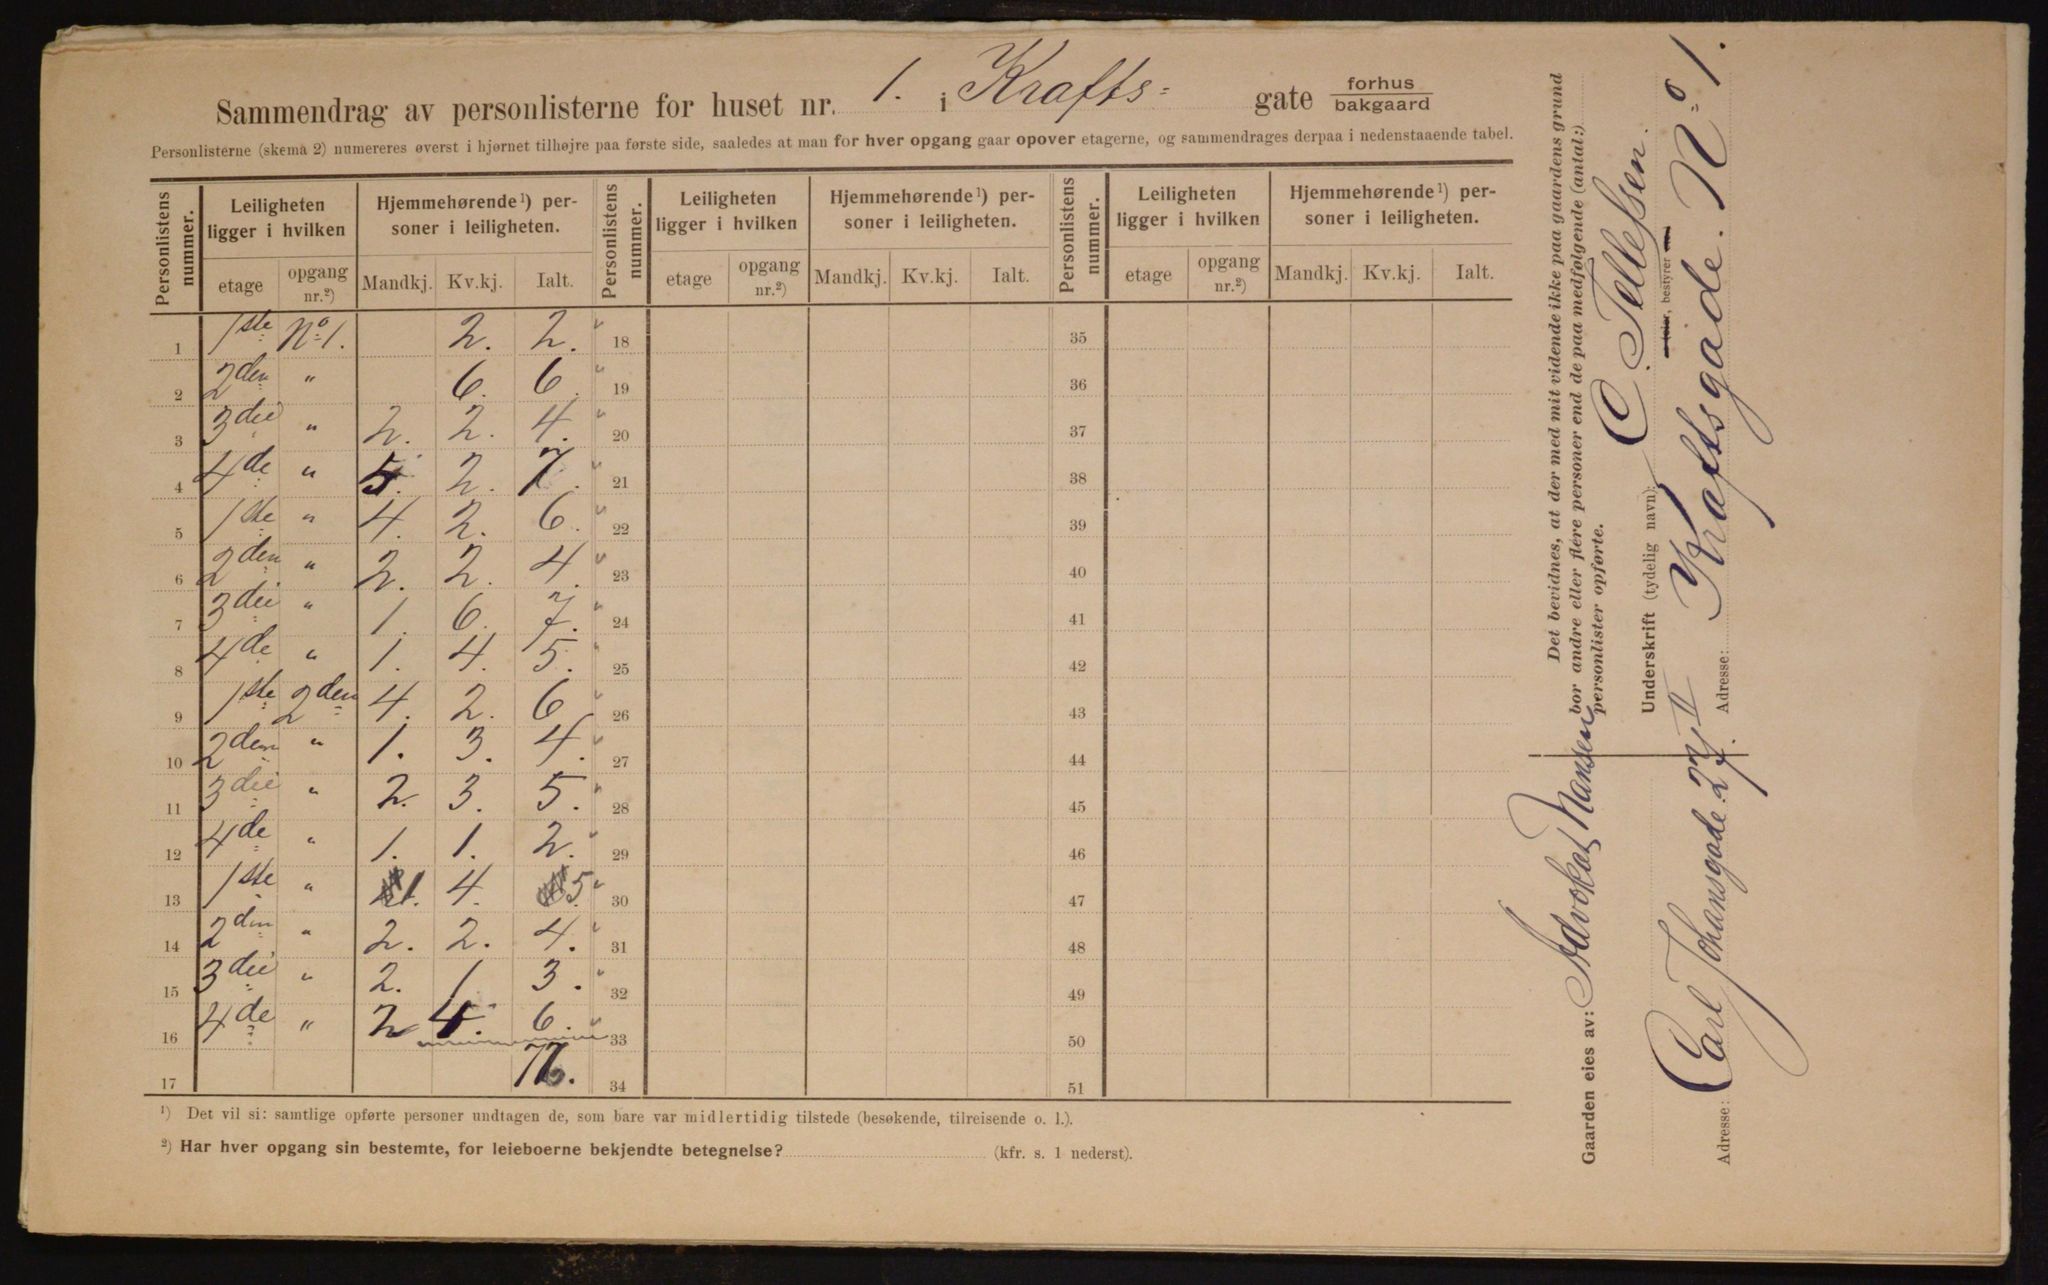 Sammendrag av personlisterne for huset nr. 1. i Krafts= gate forhus / bakgaard
Personlisterne (skema 2) numereres øverst i hjørnet tilhøjre paa første side, saaledes at man for hver opgang gaar opover etagerne, og sammendrages derpaa i nedenstaaende tabel.
Personlistens nummer. Leiligheten ligger i hvilken Hjemmehørende¹) personer i leiligheten. Personlistens nummer. Leiligheten ligger i hvilken Hjemmehørende¹) personer i leiligheten. Personlistens nummer. Leiligheten ligger i hvilken Hjemmehørende¹) personer i leiligheten.
etage opgang nr.²) Mandkj. Kv.kj. Ialt. etage opgang nr.²) Mandkj. Kv.kj. Ialt. etage opgang nr.²) Mandkj. Kv.kj. Ialt.
1 1ste No 1. 2. 2. 18 35
2 2den " 6. 6. 19 36
3 3die " 2. 2. 4. 20 37
4 4de " 5. 2. 7. 21 38
5 1ste " 4. 2. 6. 22 39
6 2den " 2. 2. 4. 23 40
7 3die " 1. 6. 7. 24 41
8 4de " 1. 4. 5. 25 42
9 1ste 2den 4. 2. 6. 26 43
10 2den " 1. 3. 4. 27 44
11 3die " 2. 3. 5. 28 45
12 4de " 1. 1. 2. 29 46
13 1ste " 1. 4. 5. 30 47
14 2den " 2. 2. 4. 31 48
15 3die " 2. 1 3. 32 49
16 4de " 2 4. 6. 33 50
17 34 51
¹) Det vil si: samtlige opførte personer undtagen de, som bare var midlertidig tilstede (besøkende, tilreisende o. l.).
²) Har hver opgang sin bestemte, for leieboerne bekjendte betegnelse? (kfr. s. 1 nederst).
Det bevidnes, at der med mit vidende ikke paa gaardens grund
bor andre eller flere personer end de paa medfølgende (antal:)
personlister opførte.
Underskrift (tydelig navn): C. Tellefsen.
eier, bestyrer
Adresse: Kraftsgade. No 1.
Gaarden eies av: Advokat Nansen
Adresse: Carl Johansgade 27 II